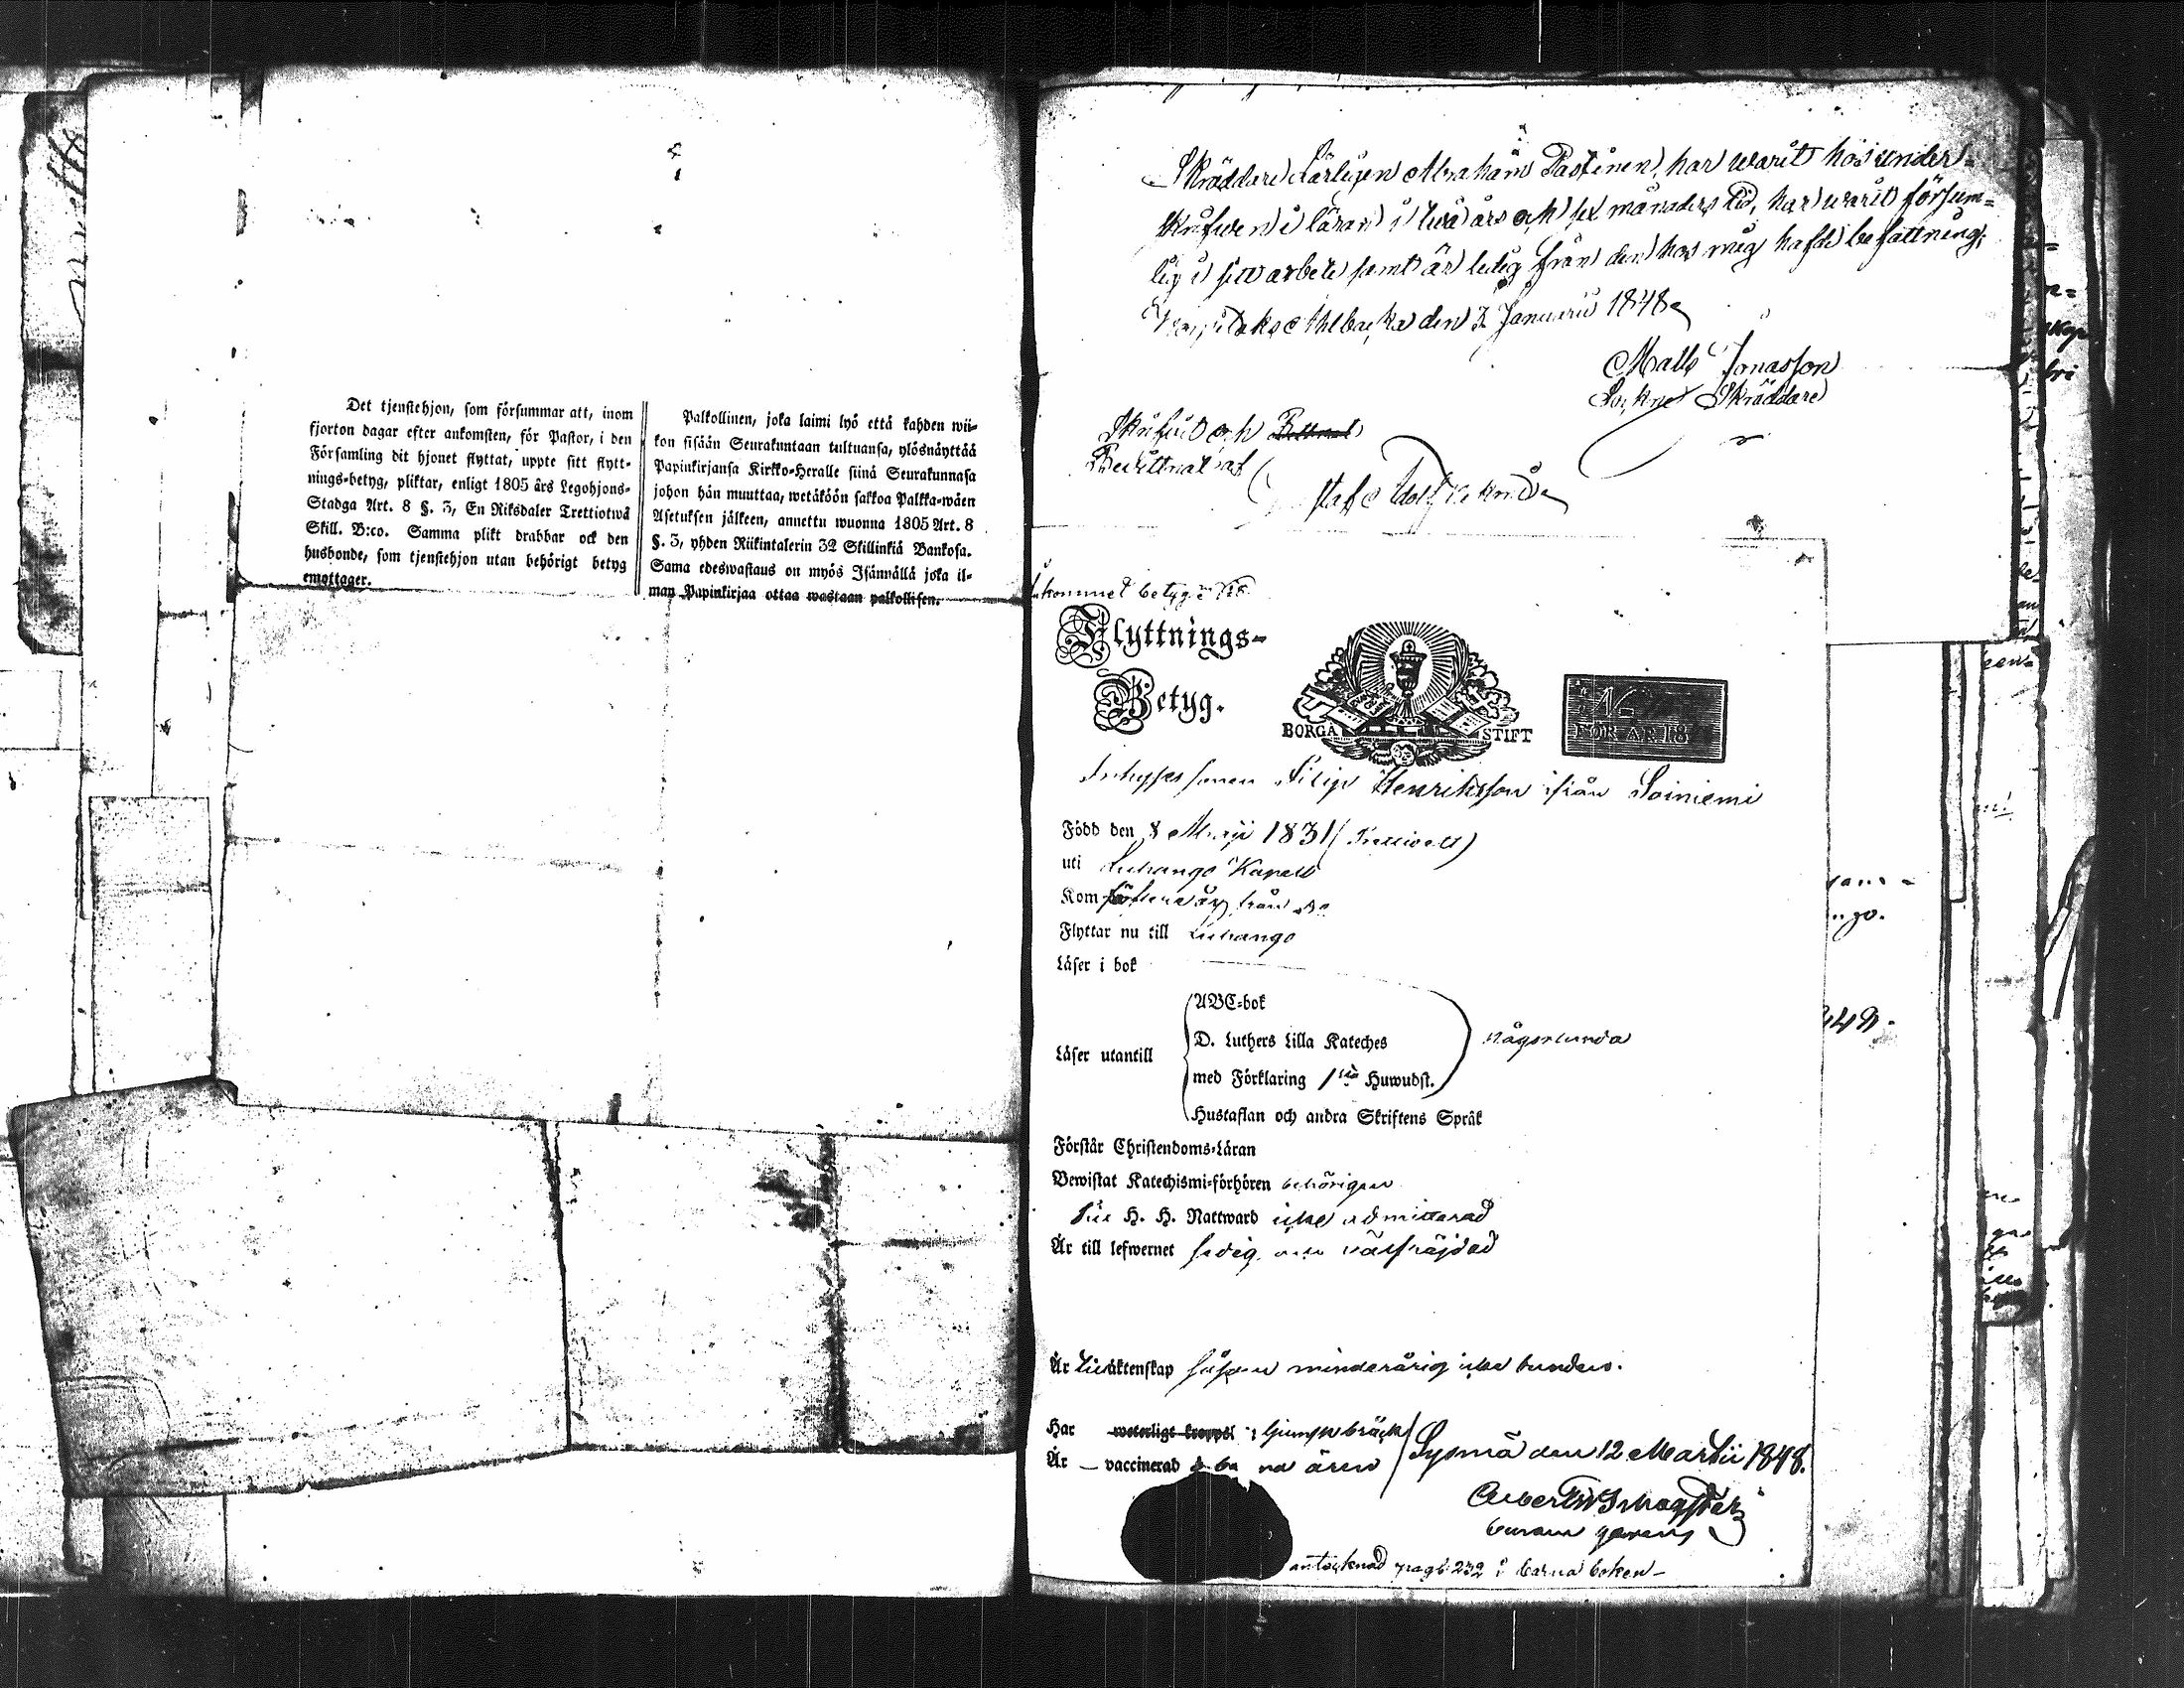 Det tjenstehjon, som försummar att, inom
fjorton dagar efter ankomsten, för Pastor, i den
Församling dit hjonet flyttat, uppte sitt flytt-
nings-betyg, pliktar, enligt 1805 års Legohjons-
Stadga Art. 8 §. 3, En Riksdaler Trettiotwå
Skill. B:co. Samma plikt drabbar ock den
husbonde, som tjenstehjon utan behörigt betyg
emottager.
Palkollinen, joka laimi lyö että kahden wii-
kon sisään Seurakuntaan tultuansa, ylösnäyttää
Papinkirjansa Kirkko-Heralle siinä Seurakunnasa
johon hän muuttaa, wetäköön sakkoa Palkka-wäen
Asetuksen jälkeen, annettu wuonna 1805 Art. 8
§. 3, yhden Riikintalerin 32 Skillinkiä Bankosa.
Sama edeswastaus on myös Isännällä joka il-
man Papinkirjaa ottaa wastaan palkollisen.
Skräddare Lärlingen Abraham Pastinen, har warit hos under-
skrifwen i läran i twå års och sex månaders tid, har warit försum-
lig i sitt arbete samt är ledig från den hos mig hafde befattning;
den 3 Januarii 1848
Matts Jonasson
Sockne Skräddare
Skrifwit och
Bewittnat af
kommet betyg
Flyttnings-
Betyg.
BORGÅ STIFT
FÖR ÅR 18
Inhyses sonen Filip Henriksson ifrån Soiniemi
Född den 8 Maji 1831
uti Luhango Kapell
Kom från
Flyttar nu till Luhango
Läser i bok
ABC-bok
Läser utantill D. Luthers Lilla Kateches någorlunda
med Förklaring 1sta Huwudst.
Hustaflan och andra Skriftens Språk
Förstår Christendoms-Läran
Bewistat Katechismi-förhören behörigen
Till H. H. Nattward icke admitterad
Är till lefwernet sedig och wälfräjdad
Är till äktenskap såsom minderårig icke bunden.
Har weterligt kropps
Är vaccinerad
Sysmä den 12 Martii 1848.
antecknad pag: 232 i barna boken